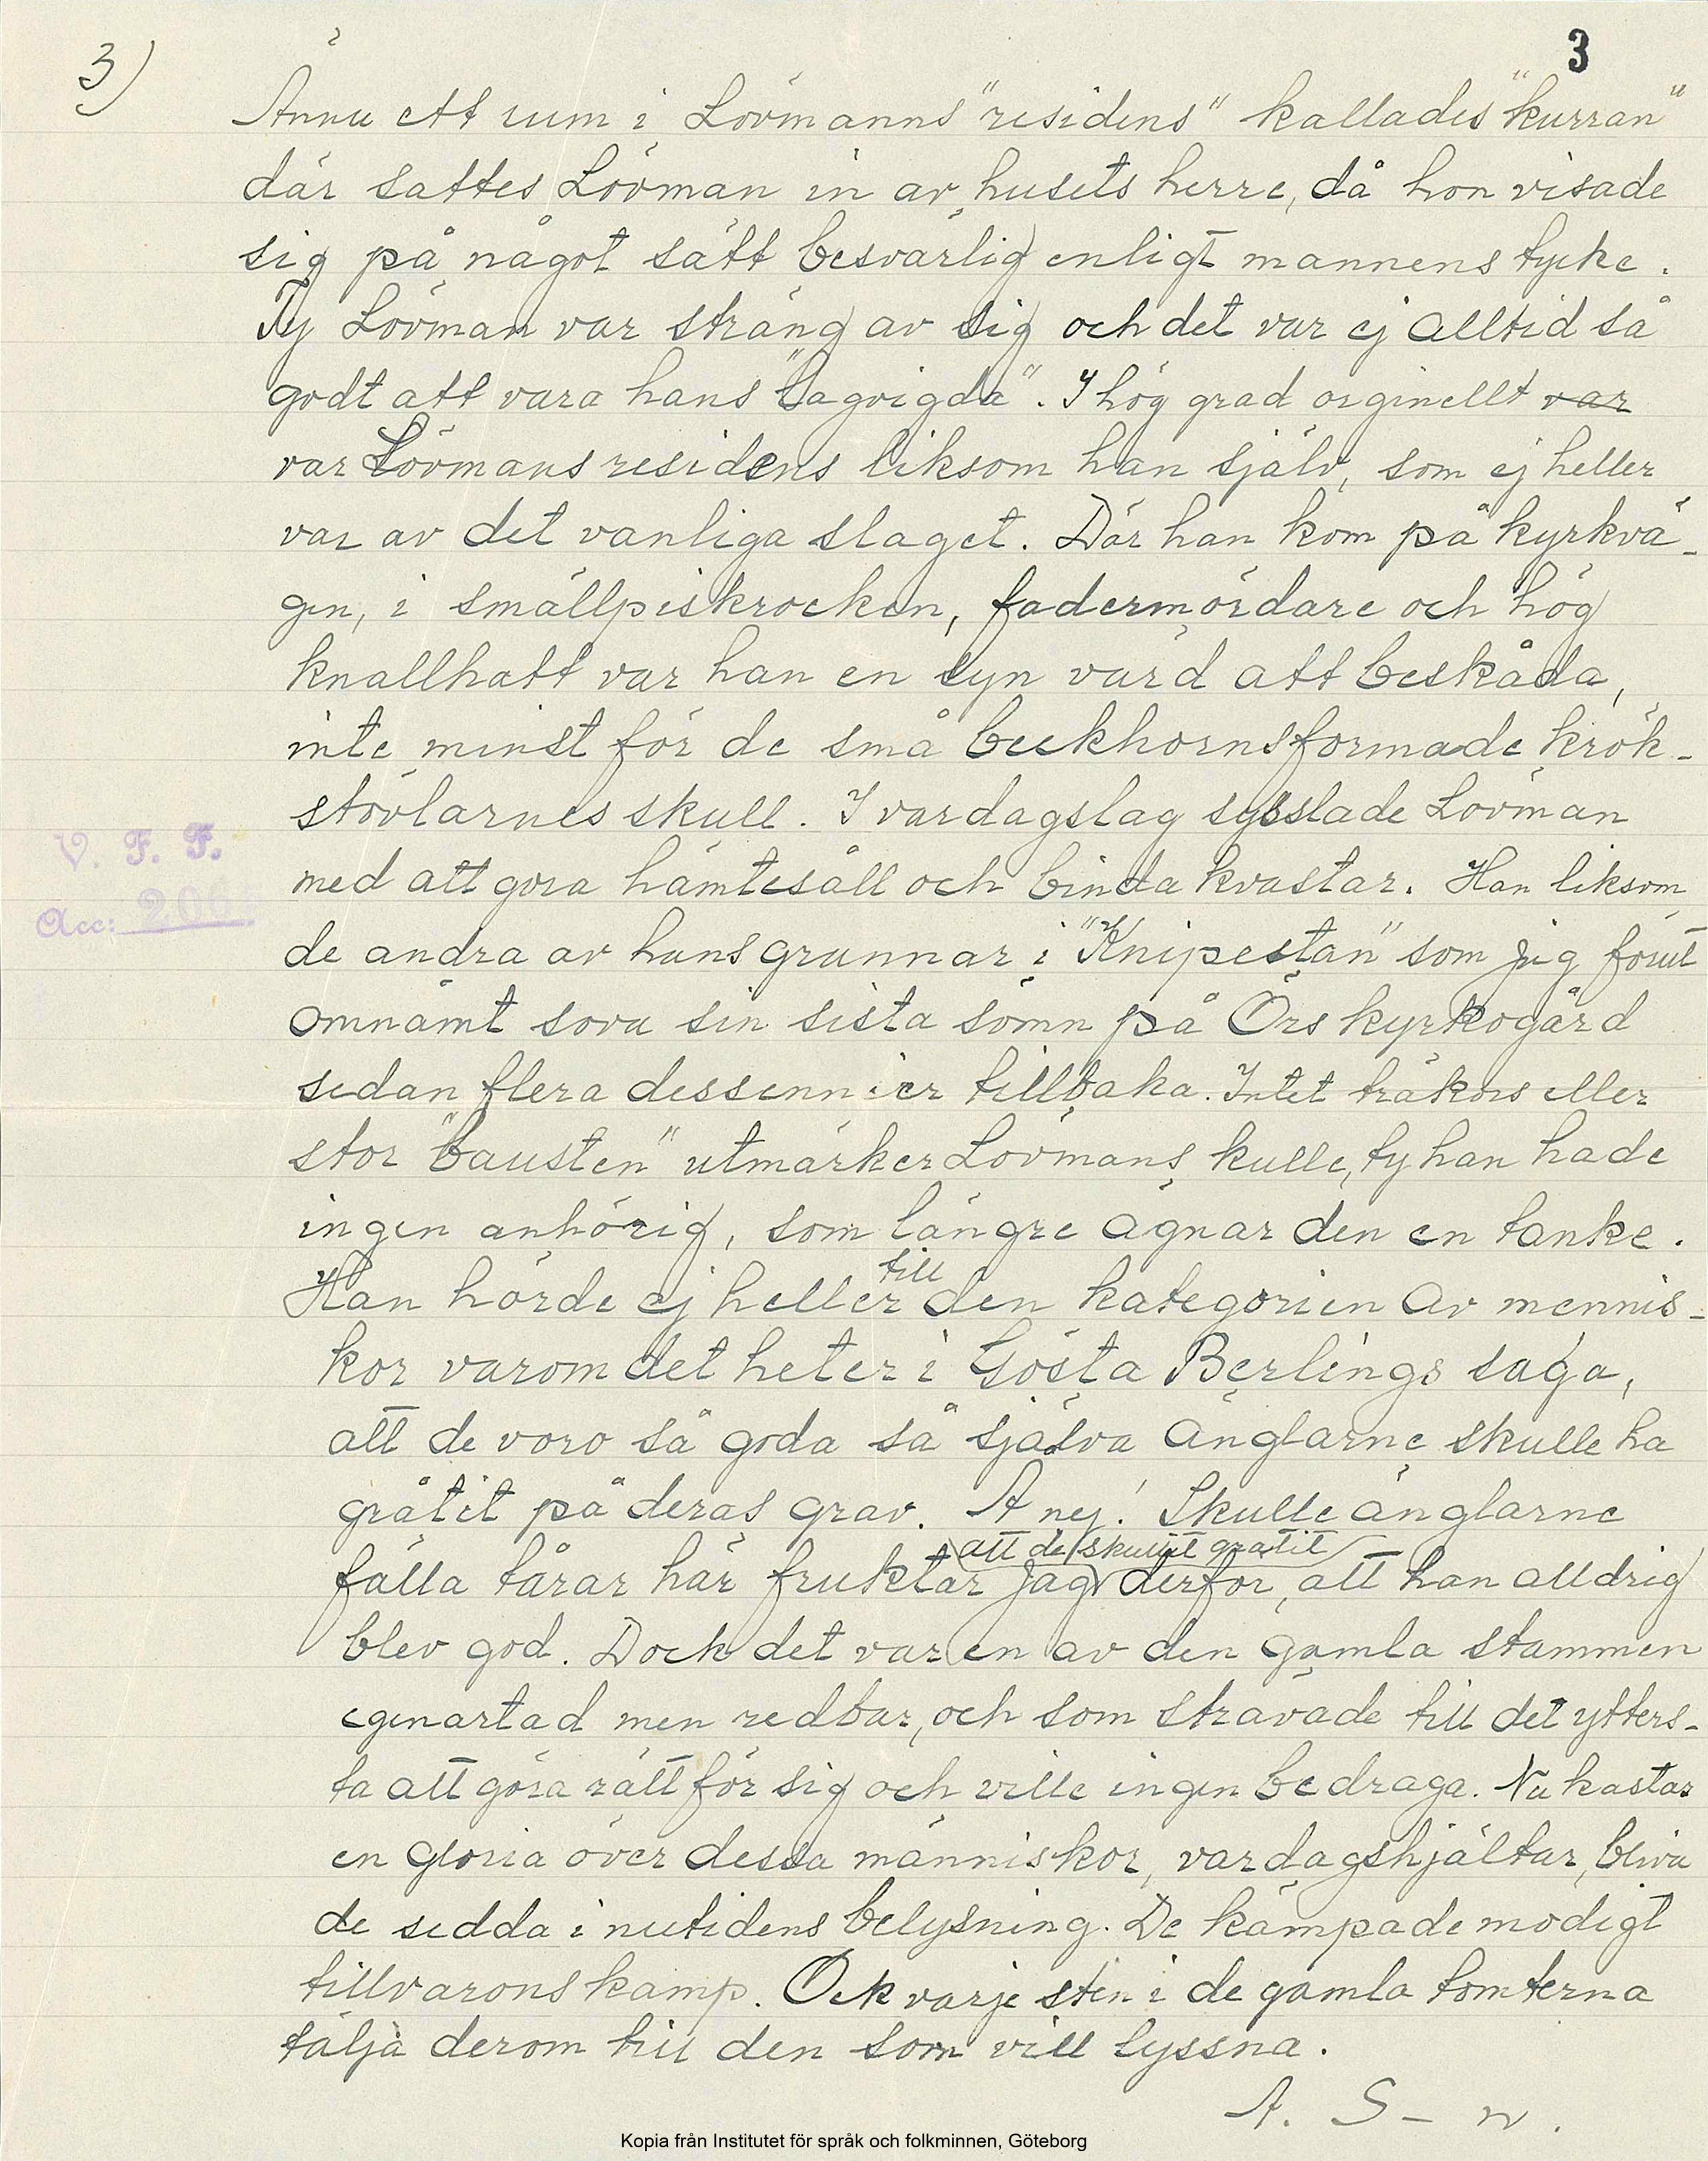 3)
3
Ännu ett rum i Lövmanns "residens" kallades "kurran"
där sattes Lövman in av husets herre, då hon visade
sig på något sätt besvärlig enligt mannens tycke.
Ty Lövman var sträng av sig och det var ej alltid så
godt att vara hans "lagvigda". I hög grad orginellt var
var Lövmans residens liksom han själv, som ej heller
var av det vanliga slaget. Där han kom på kyrkvä-
gen, i smällpiskrocken, fadermördare och hög
knallhatt var han en syn värd att beskåda,
inte minst för de små beckhornsformade krök-
stövlarnes skull. I vardagslag sysslade Lövman
med att göra hämtesåll och binda kvastar. Han liksom
de andra av hans grannar i "Knipestan" som jag förut
omnämt sova sin sista sömn på Örs kyrkogård
sedan flera dessennier tillbaka. Intet träkors eller
stor "bausten" utmärker Lövmans kulle, ty han hade
ingen anhörig, som längre ägnar den en tanke.
till
Han hörde ej heller den kategorien av mennis-
kor varom det heter i Gösta Berlings saga,
att de voro så goda så själva änglarne skulle ha
gråtit på deras grav. Å nej! Skulle änglarne
att de skullit gråtit
fälla tårar här fruktar jag derför, att han alldrig
blev god. Dock det var en av den gamla stammen
egenartad men redbar, och som strävade till det ytters-
ta att göra rätt för sig och ville ingen bedraga. Nu kastas
en gloria över dessa människor, vardagshjältar, bliva
de sedda i nutidens belysning. De kämpade modigt
tillvarons kamp. Ock varje sten i de gamla tomterna
tälja derom till den som vill lyssna.
A. S - n.
V. F. F.
Acc:
Kopia från Institutet för språk och folkminnen, Göteborg